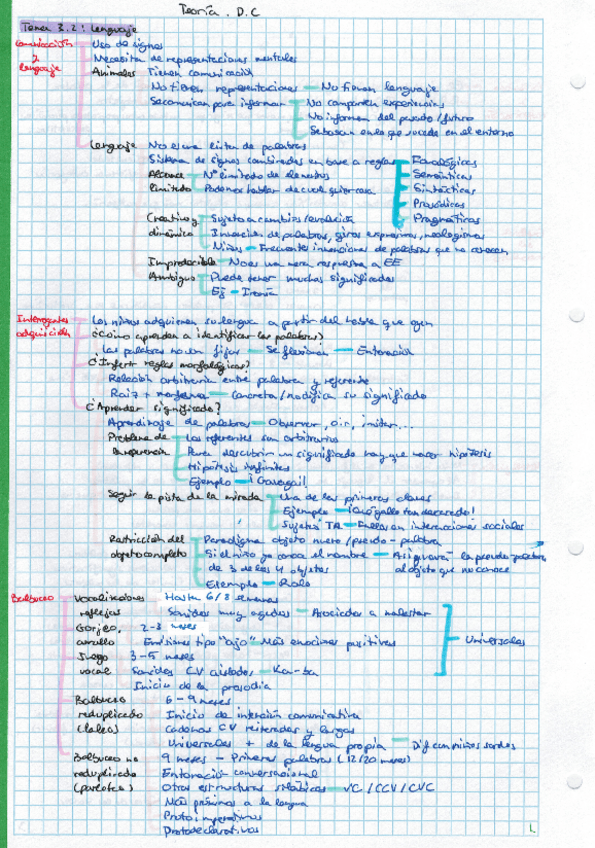 Teoría. D.C
Tema 3.2: Lenguaje
Comunicación y lenguaje
Uso de signos
Necesita de representaciones mentales
Animales Tienen comunicación
No tienen representaciones — No tienen lenguaje
Se comunican para informar No comparten experiencias
No informan del pasado/futuro
Se basan en lo que sucede en el entorno
Lenguaje No es una lista de palabras
Sistema de signos combinados en base a reglas Fonológicas
Alcance ilimitado Nº limitado de elementos Semánticas
Podemos hablar de cualquier cosa Sintácticas
Prosódicas
Pragmáticas
Creativo y dinámico Sujeto a cambios/evolución
Invención de palabras, giros expresivos, neologismos
Niños — Frecuente invenciones de palabras que no conocen
Impredecible No es una mera respuesta a EE
Ambiguo Puede tener muchos significados
Ej — Ironía
Interrogantes adquisición
Los niños adquieren su lengua a partir del habla que oyen
¿Cómo aprenden a identificar las palabras?
Las palabras no son fijas — Se flexionan — Entonación
¿Inferir reglas morfológicas?
Relación arbitraria entre palabra y referente
Raíz + morfema — Concreta/modifica su significado
¿Aprender significado?
Aprendizaje de palabras — Observar, oír, imitar...
Problema de la referencia Los referentes son arbitrarios
Para descubrir un significado hay que hacer hipótesis
Hipótesis infinitas
Ejemplo — ¡Gavagai!
Seguir la pista de la mirada Una de las primeras claves
Ejemplo — ¡Qué gallo tan dorado!
Sujetos TA — Fallos en interacciones sociales
Restricción del objeto completo Paradigma objeto nuevo/pseudo-palabra
Si el niño ya conoce el nombre de 3 de los 4 objetos — Asignará la pseudo-palabra al objeto que no conoce
Ejemplo —
Balbuceo
Vocalizaciones reflejas Hasta 6/8 semanas
Sonidos muy agudos — Asociados a malestar
Gorjeo, arrullo 2-3 meses
Emisiones tipo "ajo" Más emociones positivas — Universales
Juego vocal 3-5 meses
Sonidos CV aislados — Ka-ba
Inicio de la prosodia
Balbuceo reduplicado (laleo) 6-9 meses
Inicio de intención comunicativa
Cadenas CV reiteradas y largas
Universales + de la lengua propia — Dif con niños sordos
Balbuceo no reduplicado 9 meses - Primeras palabras (12/20 meses)
Entonación conversacional
Otras estructuras silábicas — VC/CCV/CVC
Más próximos a la lengua
Protoimperativos
Protodeclarativos
1.